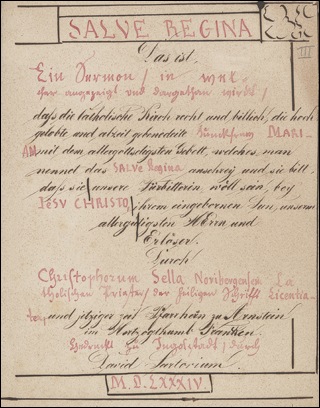 SALVE REGINA
III
Das ist.
Ein Sermon / in wel-
cher angezeigt vnd dargethan wirdt /
daß die catholische Kirch recht und billich, die hoch
gelobte und alzeit gebenedeite Junckfraw MARI-
AM mit dem allergottseligsten Gebett, welches man
nennet das SALVE Regina anschrey und sie bitt
daß sie unsere Fürbitterin, wöll sein, bey
JESV CHRISTO ihrem eingebornen Sun, unserm
allergnädigsten HErrn und
Erlöser.
Durch
Christophorum Sella Noribergensem Ca
tholischen Priester / der heiligen Schrifft Licentia-
ten, und jetziger zeit Pfarrherr zu Arnstein
im Hertzogthumb Francken.
Gedruckt zu Ingolstadt / durch
David Sartorium.
M.D.LXXXIV.